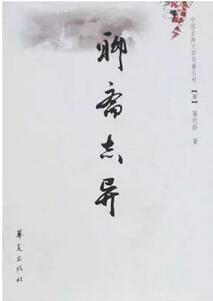 中国古典文学名著丛书
【清】 蒲松龄 著
聊斋志异
华夏出版社